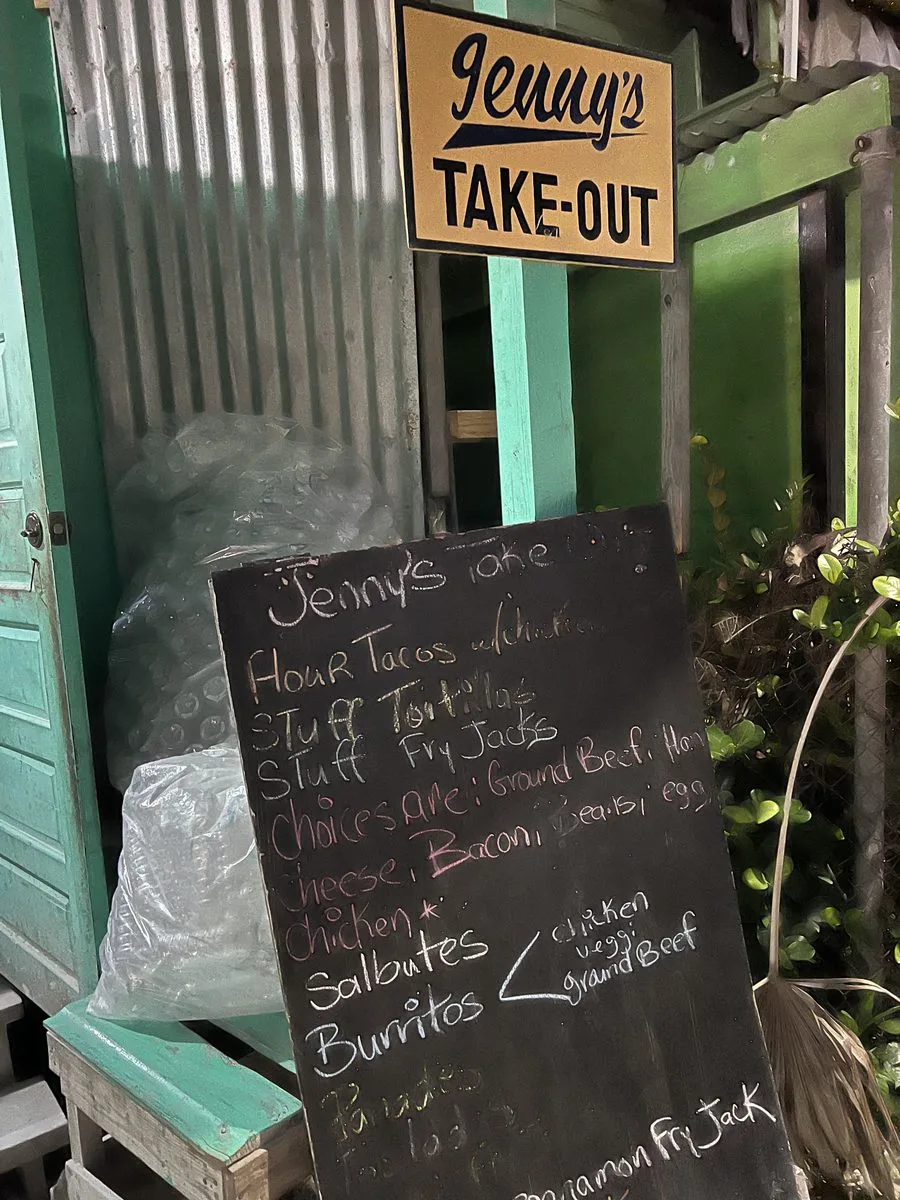 Jenny's
TAKE-OUT
Jenny's Take
Flour Tacos w/chicken
Stuff Tortillas
Stuff Fry Jacks
Choices Are: Ground Beef, Ham
Cheese, Bacon, Beans, egg
chicken*
Salbutes
Burritos
chicken
veggi
ground Beef
Cinnamon Fry Jack